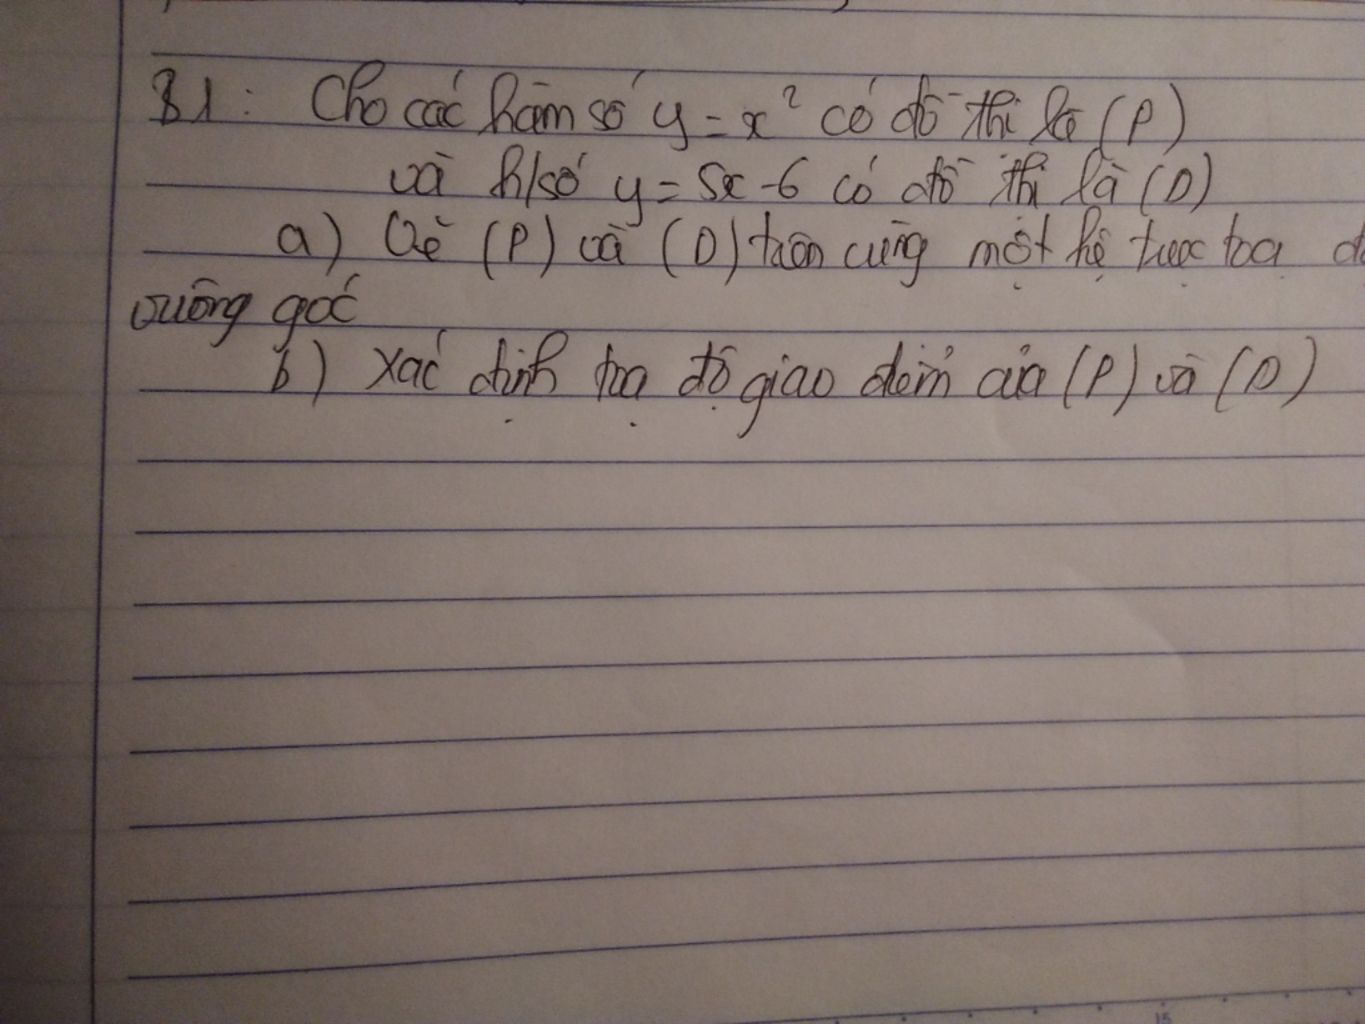 B1: Cho các hàm số y = x² có đồ thị là (P)
và h/số y = 5x - 6 có đồ thị là (D)
a) Vẽ (P) và (D) trên cùng một hệ trục toạ
vuông góc
b) Xác định toạ độ giao điểm của (P) và (D)
15